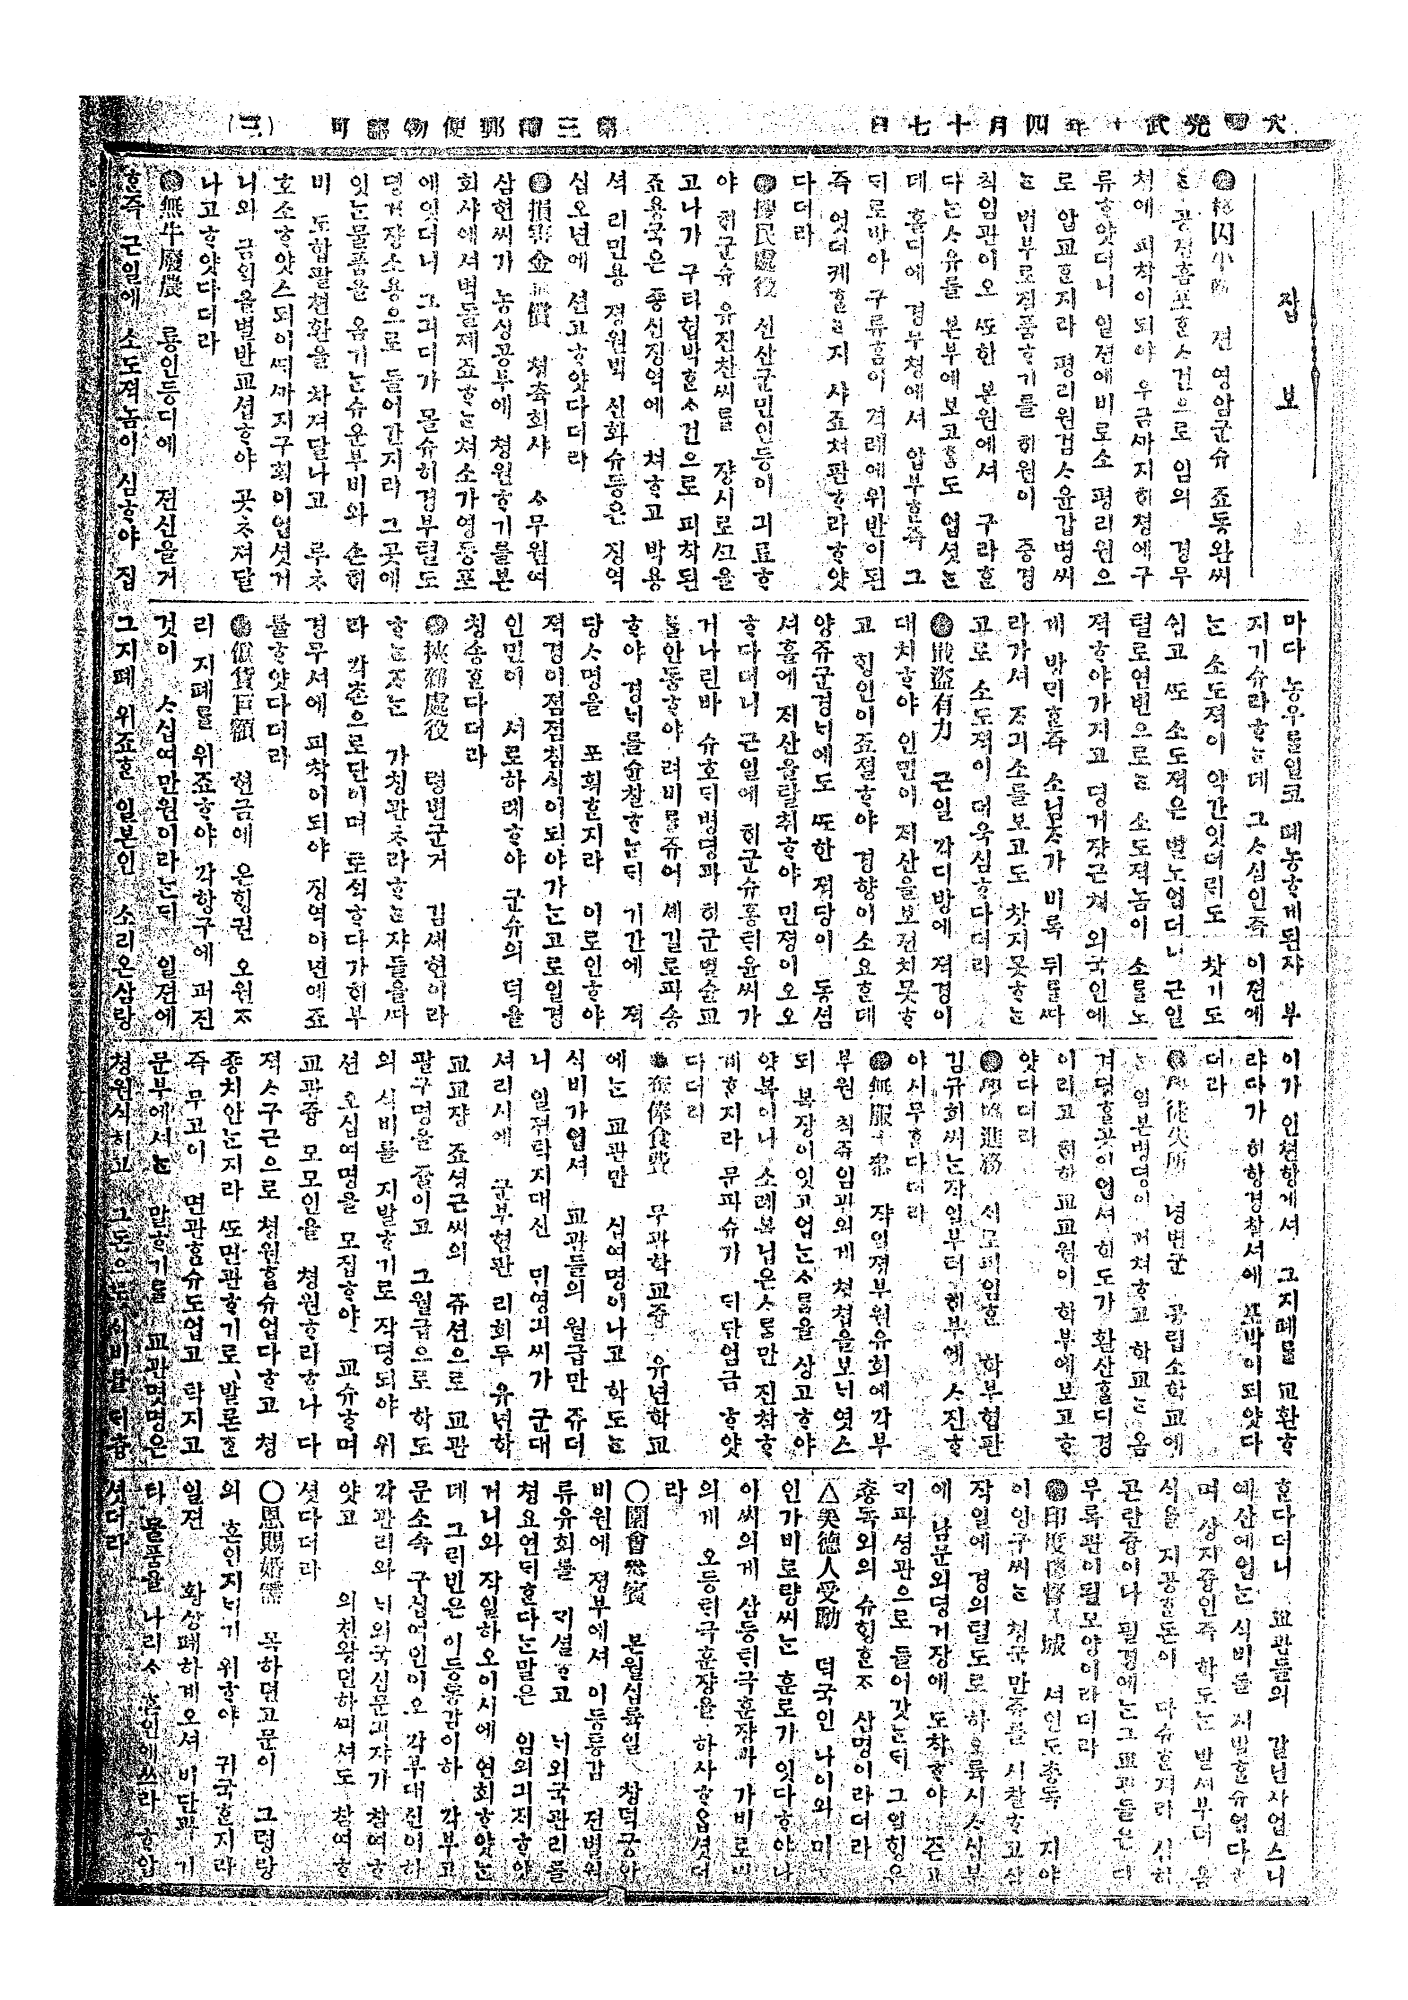 大韓光武十年四月十七日
第三種郵便物認可
(三)
잡 보
젼 영암군슈 죠동완씨
는 공젼흠포ᄒᆞᆫᄉᆞ건으로 임의 경무
쳥에 피착이되야 우금ᄭᆞ지 ᄒᆡ쳥에구
류ᄒᆞ얏더니 일젼에비로소 평리원으
로 압교ᄒᆞᆫ지라 평리원검ᄉᆞ윤갑병씨
는 법부로질품ᄒᆞ기를 ᄒᆡ원이 즁경
칙임관이오 ᄯᅩ한 본원에셔 구라ᄒᆞᆫ
다는ᄉᆞ유를 본부에보고홈도 업셧는
데 홀디에 경무쳥에셔 압부ᄒᆞᆫ즉 그
ᄃᆡ로바아 구류홈이 격례에위반이된
즉 엇더케ᄒᆞᆯ는지 사죠쳐판ᄒᆞ라ᄒᆞ얏
다더라
擾民處役 션산군민인등이 긔료ᄒᆞ
야 ᄒᆡ군슈 유진찬씨를 쟝시로ᄭᅳ을
고나가 구타협박ᄒᆞᆫᄉᆞ건으로 피착된
죠용국은 죵신징역에 쳐ᄒᆞ고 박용
셔 리민용 졍원벽 신화슈등은 징역
십오년에 션고ᄒᆞ얏다더라
損害金並償 쳑츅회샤 ᄉᆞ무원여
삼현씨가 농샹공부에 쳥원ᄒᆞ기를본
회샤에셔벽돌졔죠ᄒᆞ는쳐소가영등포
에잇더니 그긔디가 몰슈히경부텰도
뎡거쟝소용으로 들어간지라 그곳에
잇는물품을 옴기는슈운부비와 손ᄒᆡ
비 도합팔쳔환을 차져달나고 루ᄎᆞ
호소ᄒᆞ얏스되이ᄯᅢᄭᆞ지구획이업셧거
니와 금익을별반교셥ᄒᆞ야 곳ᄎᆞ져달
나고ᄒᆞ얏다더라
無牛廢農 룡인등디에 젼신을거
ᄒᆞᆫ즉 근일에 소도젹놈이 심ᄒᆞ야 집
마다 농우를일코 폐농ᄒᆞ게된쟈 부
지기슈라ᄒᆞ는데 그ᄉᆞ실인즉 이젼에
는 소도젹이 약간잇더ᄅᆡ도 찻기도
쉽고 ᄯᅩ 소도젹은 별노업더니 근일
텰로연변으로는 소도젹놈이 소를노
젹ᄒᆞ야가지고 뎡거쟝근쳐 외국인에
게 방ᄆᆡᄒᆞᆫ즉 소님ᄌᆞ가 비록 뒤를ᄯᅡ
라가셔 ᄌᆞ긔소를보고도 찻지못ᄒᆞ는
고로 소도젹이 더욱심ᄒᆞ다더라
戢盜有力 근일 각디방에 젹경이
대치ᄒᆞ야 인민이 져산을보젼치못ᄒᆞ
고 ᄒᆡᆼ인이죠졀ᄒᆞ야 경향이소요ᄒᆞᆫ데
양쥬군경ᄂᆡ에도 ᄯᅩ한 젹당이 동셤
셔홀에 져산을탈취ᄒᆞ야 민졍이오오
ᄒᆞ다더니 근일에 ᄒᆡ군슈홍ᄐᆡ윤씨가
거나린바 슈호ᄃᆡ병명과 ᄒᆡ군별슌교
를안동ᄒᆞ야 려비를쥬어 셰길로파송
ᄒᆞ야 경ᄂᆡ를슌찰ᄒᆞ는ᄃᆡ 기간에 젹
당ᄉᆞ명을 포획ᄒᆞᆫ지라 이로인ᄒᆞ야
젹경이졈졈침식이되야가는고로일경
인민이 셔로하례ᄒᆞ야 군슈의 덕을
칭송ᄒᆞᆫ다더라
挾雜處役 령변군거 김셰현이라
ᄒᆞ는ᄌᆞ는 가칭관ᄎᆞ라ᄒᆞ는쟈들을ᄯᅡ
라 각촌으로단이며 토식ᄒᆞ다가ᄒᆡ부
경무셔에 피착이되야 징역이년에죠
률ᄒᆞ얏다더라
假貨巨額 현금에 은ᄒᆡᆼ권 오원ᄌᆞ
리 지폐를 위죠ᄒᆞ야 각항구에 퍼진
것이 ᄉᆞ십여만원이라는ᄃᆡ 일젼에
그지폐 위죠ᄒᆞᆫ 일본인 소리온삼랑
이가 인쳔항게셔 그지폐를 교환ᄒᆞ
랴다가 ᄒᆡ항경찰셔에 포박이되얏다
더라
學徒失所 녕변군 공립소학교에
는 일본병뎡이 거쳐ᄒᆞ고 학교는 옴
겨덕ᄒᆞᆯ곳이업셔 학도가 환산홀디경
이라고 ᄒᆡ학교교원이 학부에보고ᄒᆞ
얏다더라
學協進務 시로피임ᄒᆞᆫ 학부협판
김규희씨는작일부터 ᄒᆡ부에 ᄉᆞ진ᄒᆞ
야시무ᄒᆞᆫ다더라
無服不參 쟉일젹부원유회에각부
부원 칙쥬임관의게 쳥쳡을보ᄂᆡ엿스
되 복장이잇고업는ᄉᆞ를을 상고ᄒᆞ야
얏복이나 소례복입은ᄉᆞ롬만 진참ᄒᆞ
게ᄒᆞᆫ지라 문파슈가 ᄃᆡ단엄금ᄒᆞ얏
다더라
在俸食費 무관학교즁 유년학교
에는 교관만 십여명이나고 학도는
식비가업셔 교관들의 월급만 쥬더
니 일젼탁지대신 민영긔씨가 군대
셔리시에 군부협판 리희두 유년학
교교쟝 죠셩근씨의 쥬션으로 교관
팔구명을 줄이고 그월급으로 학도
의 식비를 지발ᄒᆞ기로 작뎡되야 위
션 오십여명을 모집ᄒᆞ야 교슈ᄒᆞ며
교관즁 모모인을 쳥원ᄒᆞ리ᄒᆞ나 다
젹ᄉᆞ구근으로 쳥원홈슈업다ᄒᆞ고 쳥
죵치안는지라 ᄯᅩ면관ᄒᆞ기로발론ᄒᆞᆫ
즉 무고이 면관홈슈도업고 탁지고
문부에셔는 말ᄒᆞ기를 교관몃명은
쳥원시히고 그돈으로 식비를 ᄃᆡ츌
ᄒᆞᆫ다더니 교관들의 갈닌사업스니
예산에업는 식비를 지발ᄒᆞᆫ슈업다ᄒᆞ
며 상지즁인즉 학도는 발셔부터 음
식을 지공ᄒᆞᆫ돈이 다슈ᄒᆞᆫ지라 심히
곤란즁이나 필경에는그교관들은 ᄃᆡ
부록관이될모양이라더라
印度總督入城 셔인도총독 지야
이엉구씨는 쳥국만쥬를 시찰ᄒᆞ고상
작일에 경의텰도로 하오륙시ᄉᆞ십부
에 남문외뎡거장에 도착ᄒᆞ야 즌고
긔파셩관으로 들어갓는ᄃᆡ 그일ᄒᆡᆼ은
총독외의 슈ᄒᆡᆼᄒᆞᆫᄌᆞ 삼명이라더라
△美德人受勳 덕국인 나이와 미
인가비로량씨는 훈로가 잇다ᄒᆞ야나
아씨의게 삼등ᄐᆡ극훈쟝과 가비로씨
의게 오등ᄐᆡ극훈쟝을 하사ᄒᆞ옵셧더
라
○園會參賓 본월십륙일 창덕궁안
비원에 졍부에셔 이등통감 젼별원
류유회를 ᄀᆡ셜ᄒᆞ고 ᄂᆡ외국관리를
쳥요연ᄃᆡᄒᆞᆫ다는말은 임의긔ᄌᆡᄒᆞ얏
거니와 작일하오이시에 연회ᄒᆞ얏는
데 그ᄅᆡ빈은 이등통감이하 각부고
문소속 구십여인이오 각부대신이하
각관리와 ᄂᆡ외국신문긔쟈가 참여ᄒᆞ
얏고 의친왕뎐하ᄭᅴ셔도 참여ᄒᆞ
셧다더라
○恩賜婚需 목하뎐고문이 그령랑
의 혼인지ᄂᆡ기 위ᄒᆞ야 귀국ᄒᆞᆫ지라
일젼 황상폐하ᄭᅴ오셔 비단과 기
타 물품을 나리ᄉᆞ 혼인에쓰라 ᄒᆞ압
셧더라